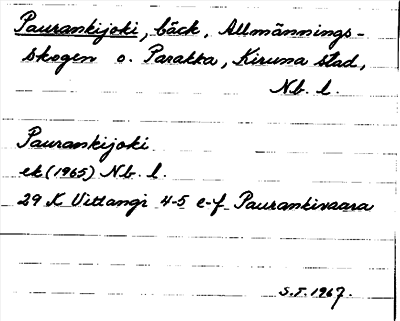 Paurankijoki, bäck, Allmännings-
skogen o. Parakka, Kiruna stad,
Nb. l.
Paurankijoki
ek (1965) Nb. l.
29 K Vittangi 4-5 e-f Paurankivaara
S.T. 1967.